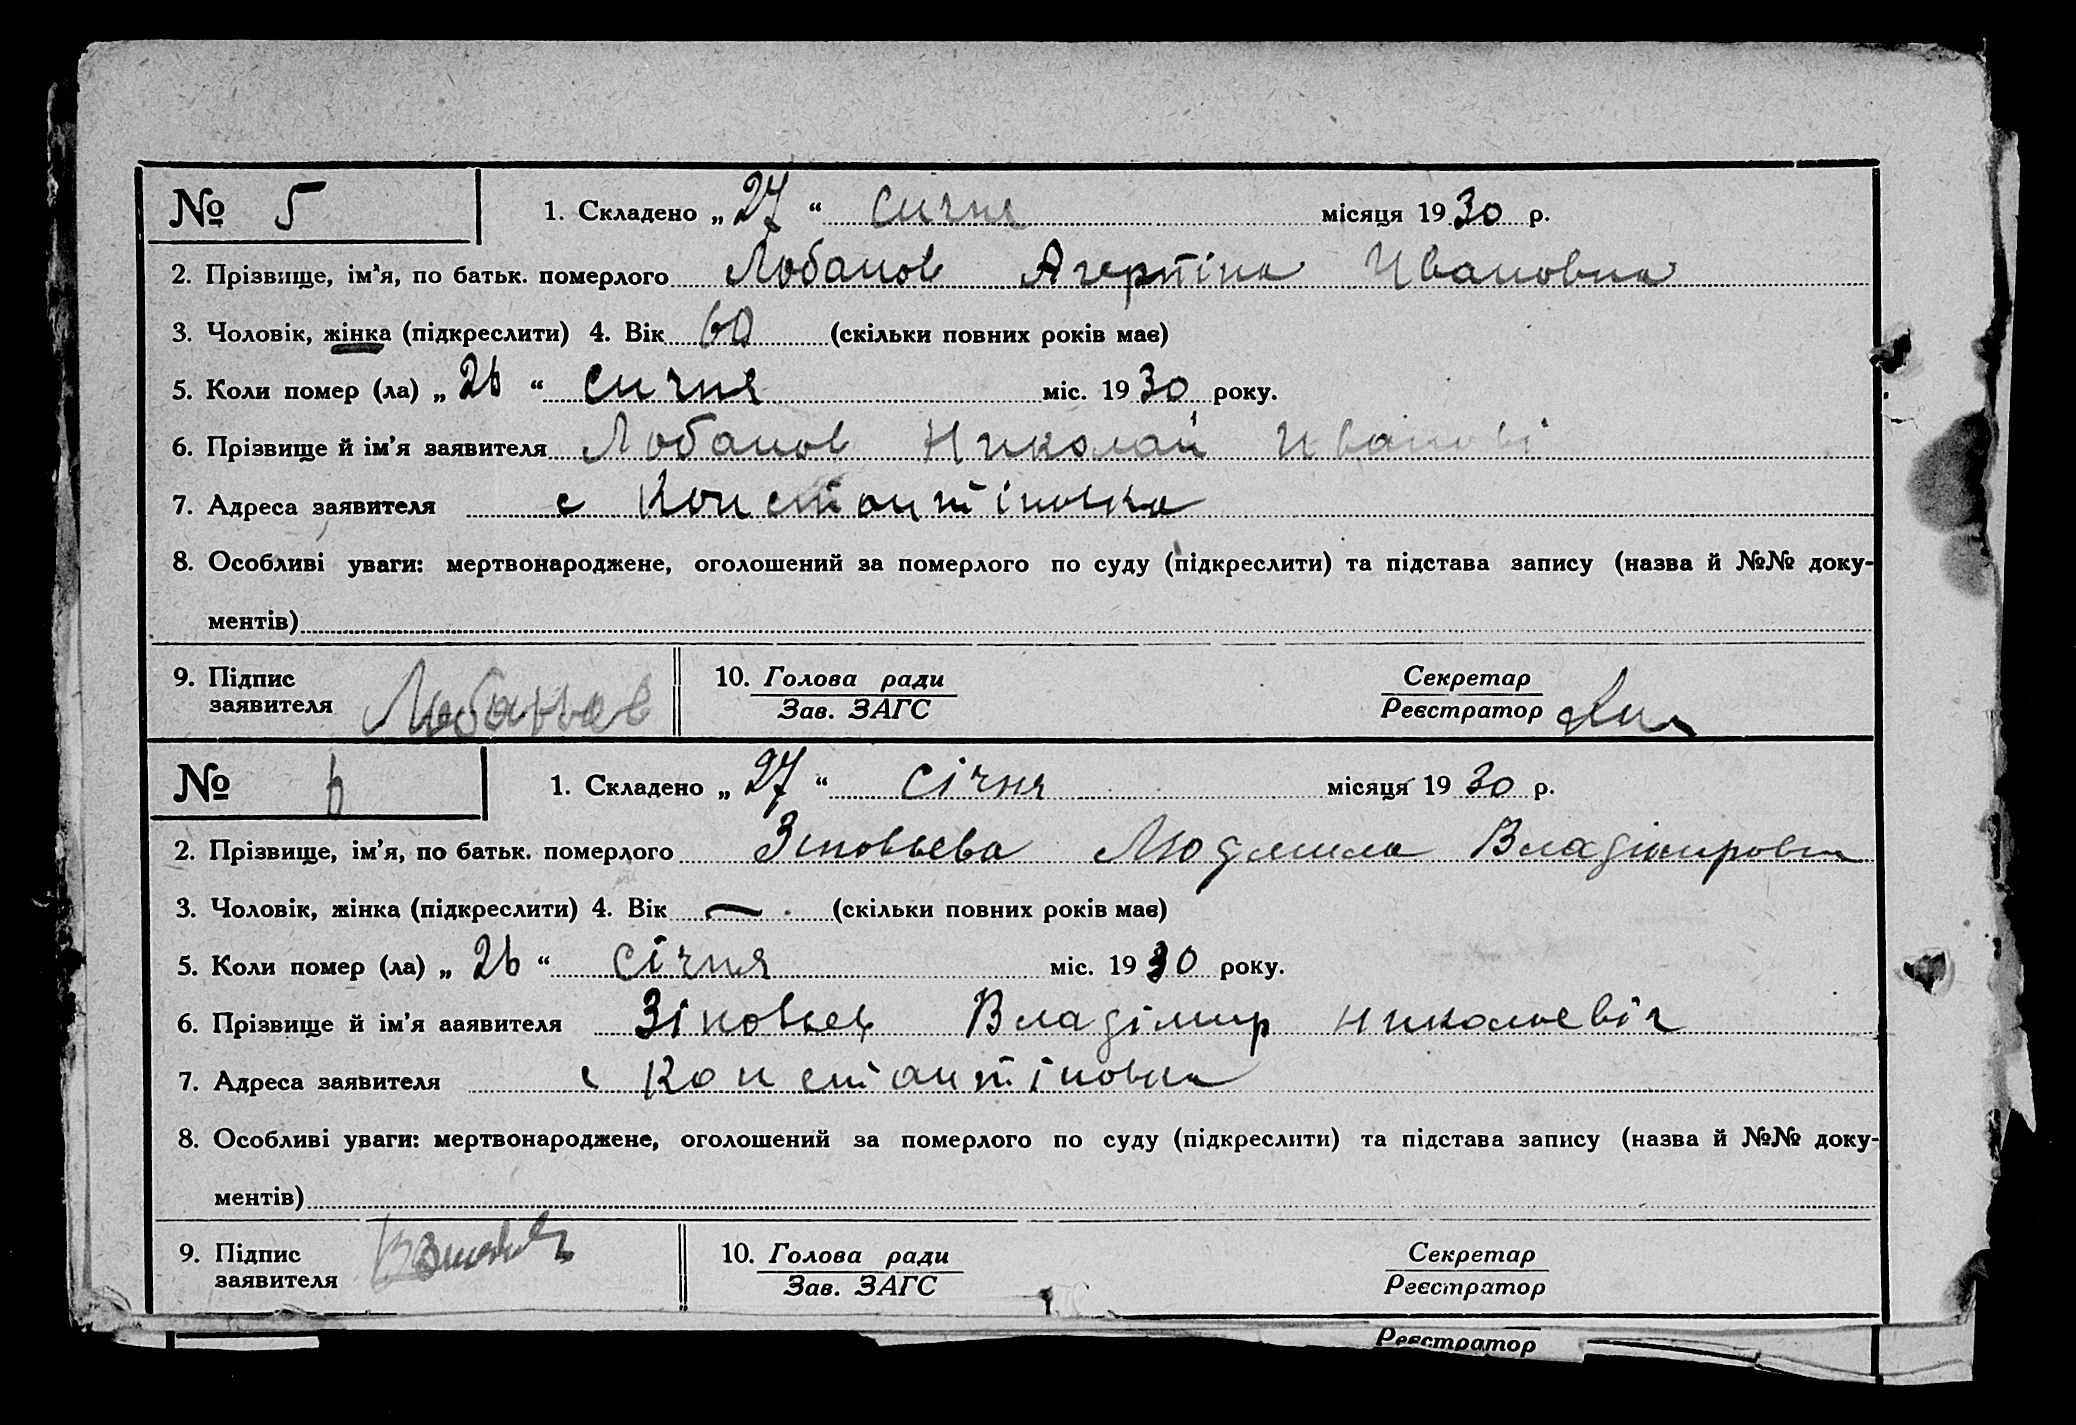 № 5 1. Складено „27“ сичня місяця 1930 р.
2. Прізвище, ім'я, по батьк. померлого Лобанов Агерпіна Ивановна
3. Чоловік, жінка (підкреслити) 4. Вік 60 (скільки повних років має)
5. Коли помер (ла) „26“ сичня міс. 1930 року.
6. Прізвище й ім'я заявителя Лобанов Николай Иванові
7. Адреса заявителя с Константіновка
8. Особливі уваги: мертвонароджене, оголошений за померлого по суду (підкреслити) та підстава запису (назва й №№ доку-
ментів)
9. Підпис 10. Голова ради Секретар
заявителя Лобанов Зав. ЗАГС Реєстратор
№ 6 1. Складено „27“ січня місяця 1930 р.
2. Прізвище, ім'я, по батьк. померлого Зіновьева Людмила Владімировна
3. Чоловік, жінка (підкреслити) 4. Вік — (скільки повних років має)
5. Коли помер (ла) „26“ січня міс. 1930 року.
6. Прізвище й ім'я ааявителя Зіновьев Владімир Николаевіч
7. Адреса заявителя с Константіновка
8. Особливі уваги: мертвонароджене, оголошений за померлого по суду (підкреслити) та підстава запису (назва й №№ доку-
ментів)
9. Підпис 10. Голова ради Секретар
заявителя Зав. ЗАГС Реєстратор
Реєстратор